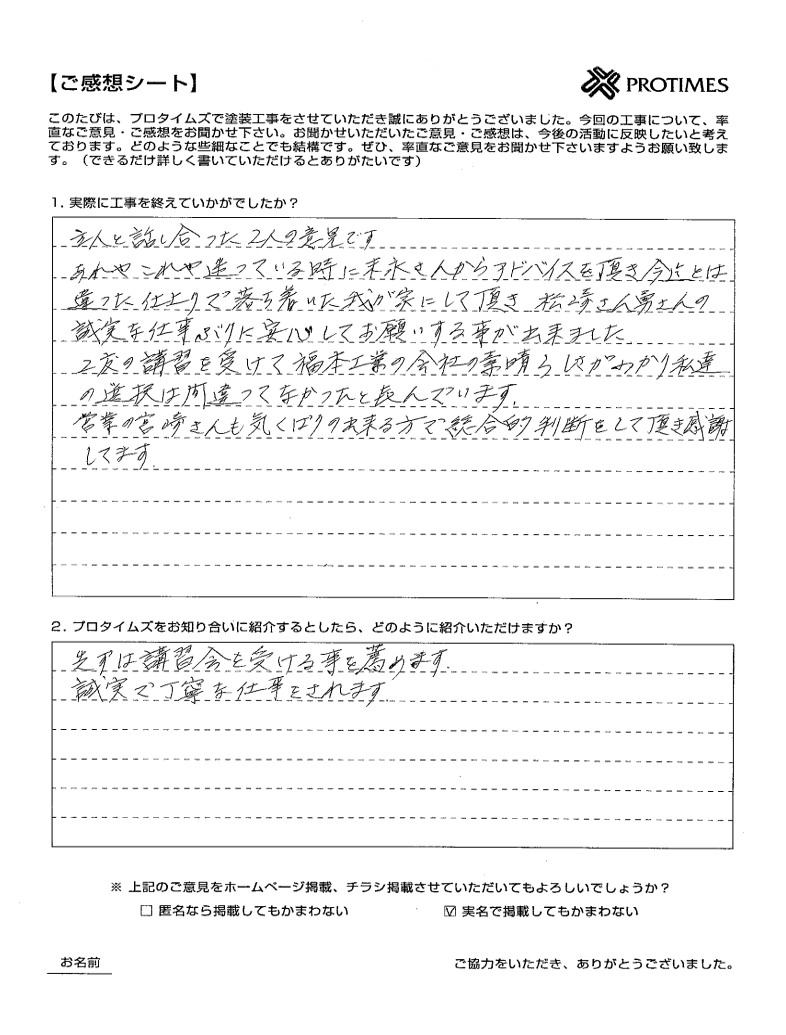 【ご感想シート】
PROTIMES
このたびは、プロタイムズで塗装工事をさせていただき誠にありがとうございました。今回の工事について、率
直なご意見・ご感想をお聞かせ下さい。お聞かせいただいたご意見・ご感想は、今後の活動に反映したいと考え
ております。どのような些細なことでも結構です。ぜひ、率直なご意見をお聞かせ下さいますようお願い致しま
す。（できるだけ詳しく書いていただけるとありがたいです）
1. 実際に工事を終えていかがでしたか？
主人と話し合った2人の意見です
あれやこれや迷っている時に末永さんからアドバイスを頂き今迄とは
違った仕上りで落ち着いた我が家にして頂き 松崎さん勇さんの
誠実な仕事ぶりに安心してお願いする事が出来ました
2度の講習を受けて福本工業の会社の素晴らしさがわかり私達
の選択は間違ってなかったと喜んでいます.
営業の宮崎さんも気くばりの出来る方で総合的判断をして頂き感謝
してます.
2. プロタイムズをお知り合いに紹介するとしたら、どのように紹介いただけますか？
先ずは講習会を受ける事を薦めます.
誠実で丁寧な仕事をされます
※ 上記のご意見をホームページ掲載、チラシ掲載させていただいてもよろしいでしょうか？
□ 匿名なら掲載してもかまわない ☑ 実名で掲載してもかまわない
お名前 ご協力をいただき、ありがとうございました。